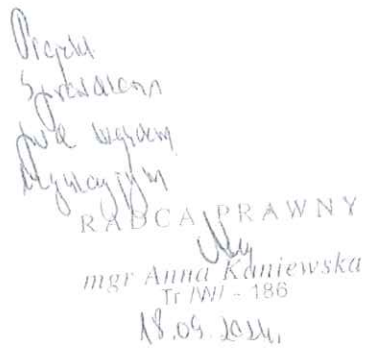 Projekt
Sprawdzono
pod względem
RADCA PRAWNY
mgr Anna Kaniewska
Tr /W/ - 186
18.09.2024r.